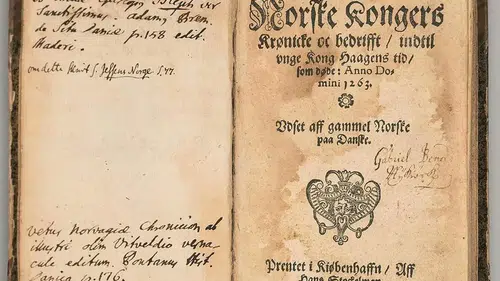 Sanctissimus. adam, Brem.
de Situ Daniæ p. 158 edit.
Maderi.
om dette skrift s. Jessens Norge S. 77.
vetus Norvagiæ Chronicion ab
illustri olim Vitveldio verna-
cule editum. Pontanus Hist.
Danica p. 176.
Norske Kongers
Krønicke oc bedrifft / indtil
vnge Kong Haagens tid /
som døde: Anno Do-
mini 1263.
Vdset aff gammel Norske
paa Danske.
Gabriel
Prentet i Kiøbenhaffn / Aff
Hans Stockelman